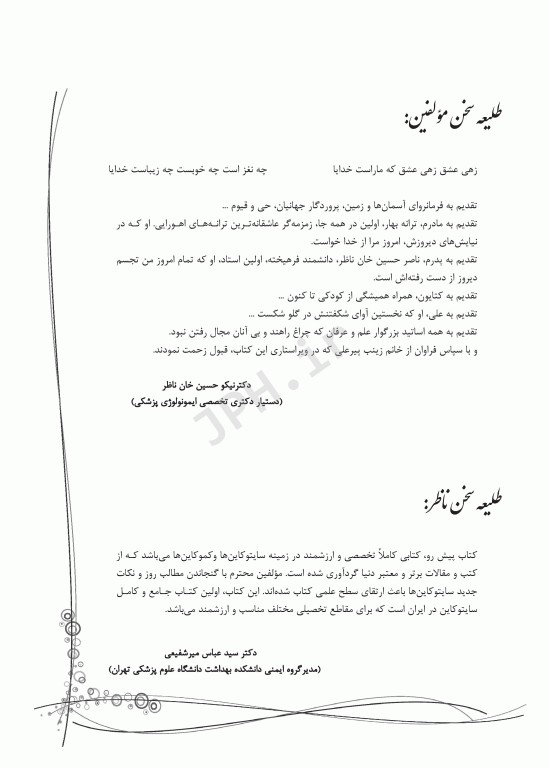 طلیعه سخن مؤلفین:
زهی عشق زهی عشق که ماراست خدایا چه نغز است چه خوبست چه زیباست خدایا
تقدیم به فرمانروای آسمان‌ها و زمین، پروردگار جهانیان، حی و قیوم ...
تقدیم به مادرم، ترانه بهار، اولین در همه جا، زمزمه‌گر عاشقانه‌ترین ترانه‌های اهورایی. او که در
نیایش‌های دیروزش، امروز مرا از خدا خواست.
تقدیم به پدرم، ناصر حسین خان ناظر، دانشمند فرهیخته، اولین استاد، او که تمام امروز من تجسم
دیروز از دست رفته‌اش است.
تقدیم به کتایون، همراه همیشگی از کودکی تا کنون ...
تقدیم به علی، او که نخستین آوای شکفتنش در گلو شکست ...
تقدیم به همه اساتید بزرگوار علم و عرفان که چراغ راهند و بی آنان مجال رفتن نبود.
و با سپاس فراوان از خانم زینب پیرعلی که در ویراستاری این کتاب، قبول زحمت نمودند.
دکترنیکو حسین خان ناظر
(دستیار دکتری تخصصی ایمونولوژی پزشکی)
JPH.ir
طلیعه سخن ناظر:
کتاب پیش رو، کتابی کاملاً تخصصی و ارزشمند در زمینه سایتوکاین‌ها وکموکاین‌ها می‌باشد که از
کتب و مقالات برتر و معتبر دنیا گردآوری شده است. مؤلفین محترم با گنجاندن مطالب روز و نکات
جدید سایتوکاین‌ها باعث ارتقای سطح علمی کتاب شده‌اند. این کتاب، اولین کتاب جامع و کامل
سایتوکاین در ایران است که برای مقاطع تحصیلی مختلف مناسب و ارزشمند می‌باشد.
دکتر سید عباس میرشفیعی
(مدیرگروه ایمنی دانشکده بهداشت دانشگاه علوم پزشکی تهران)